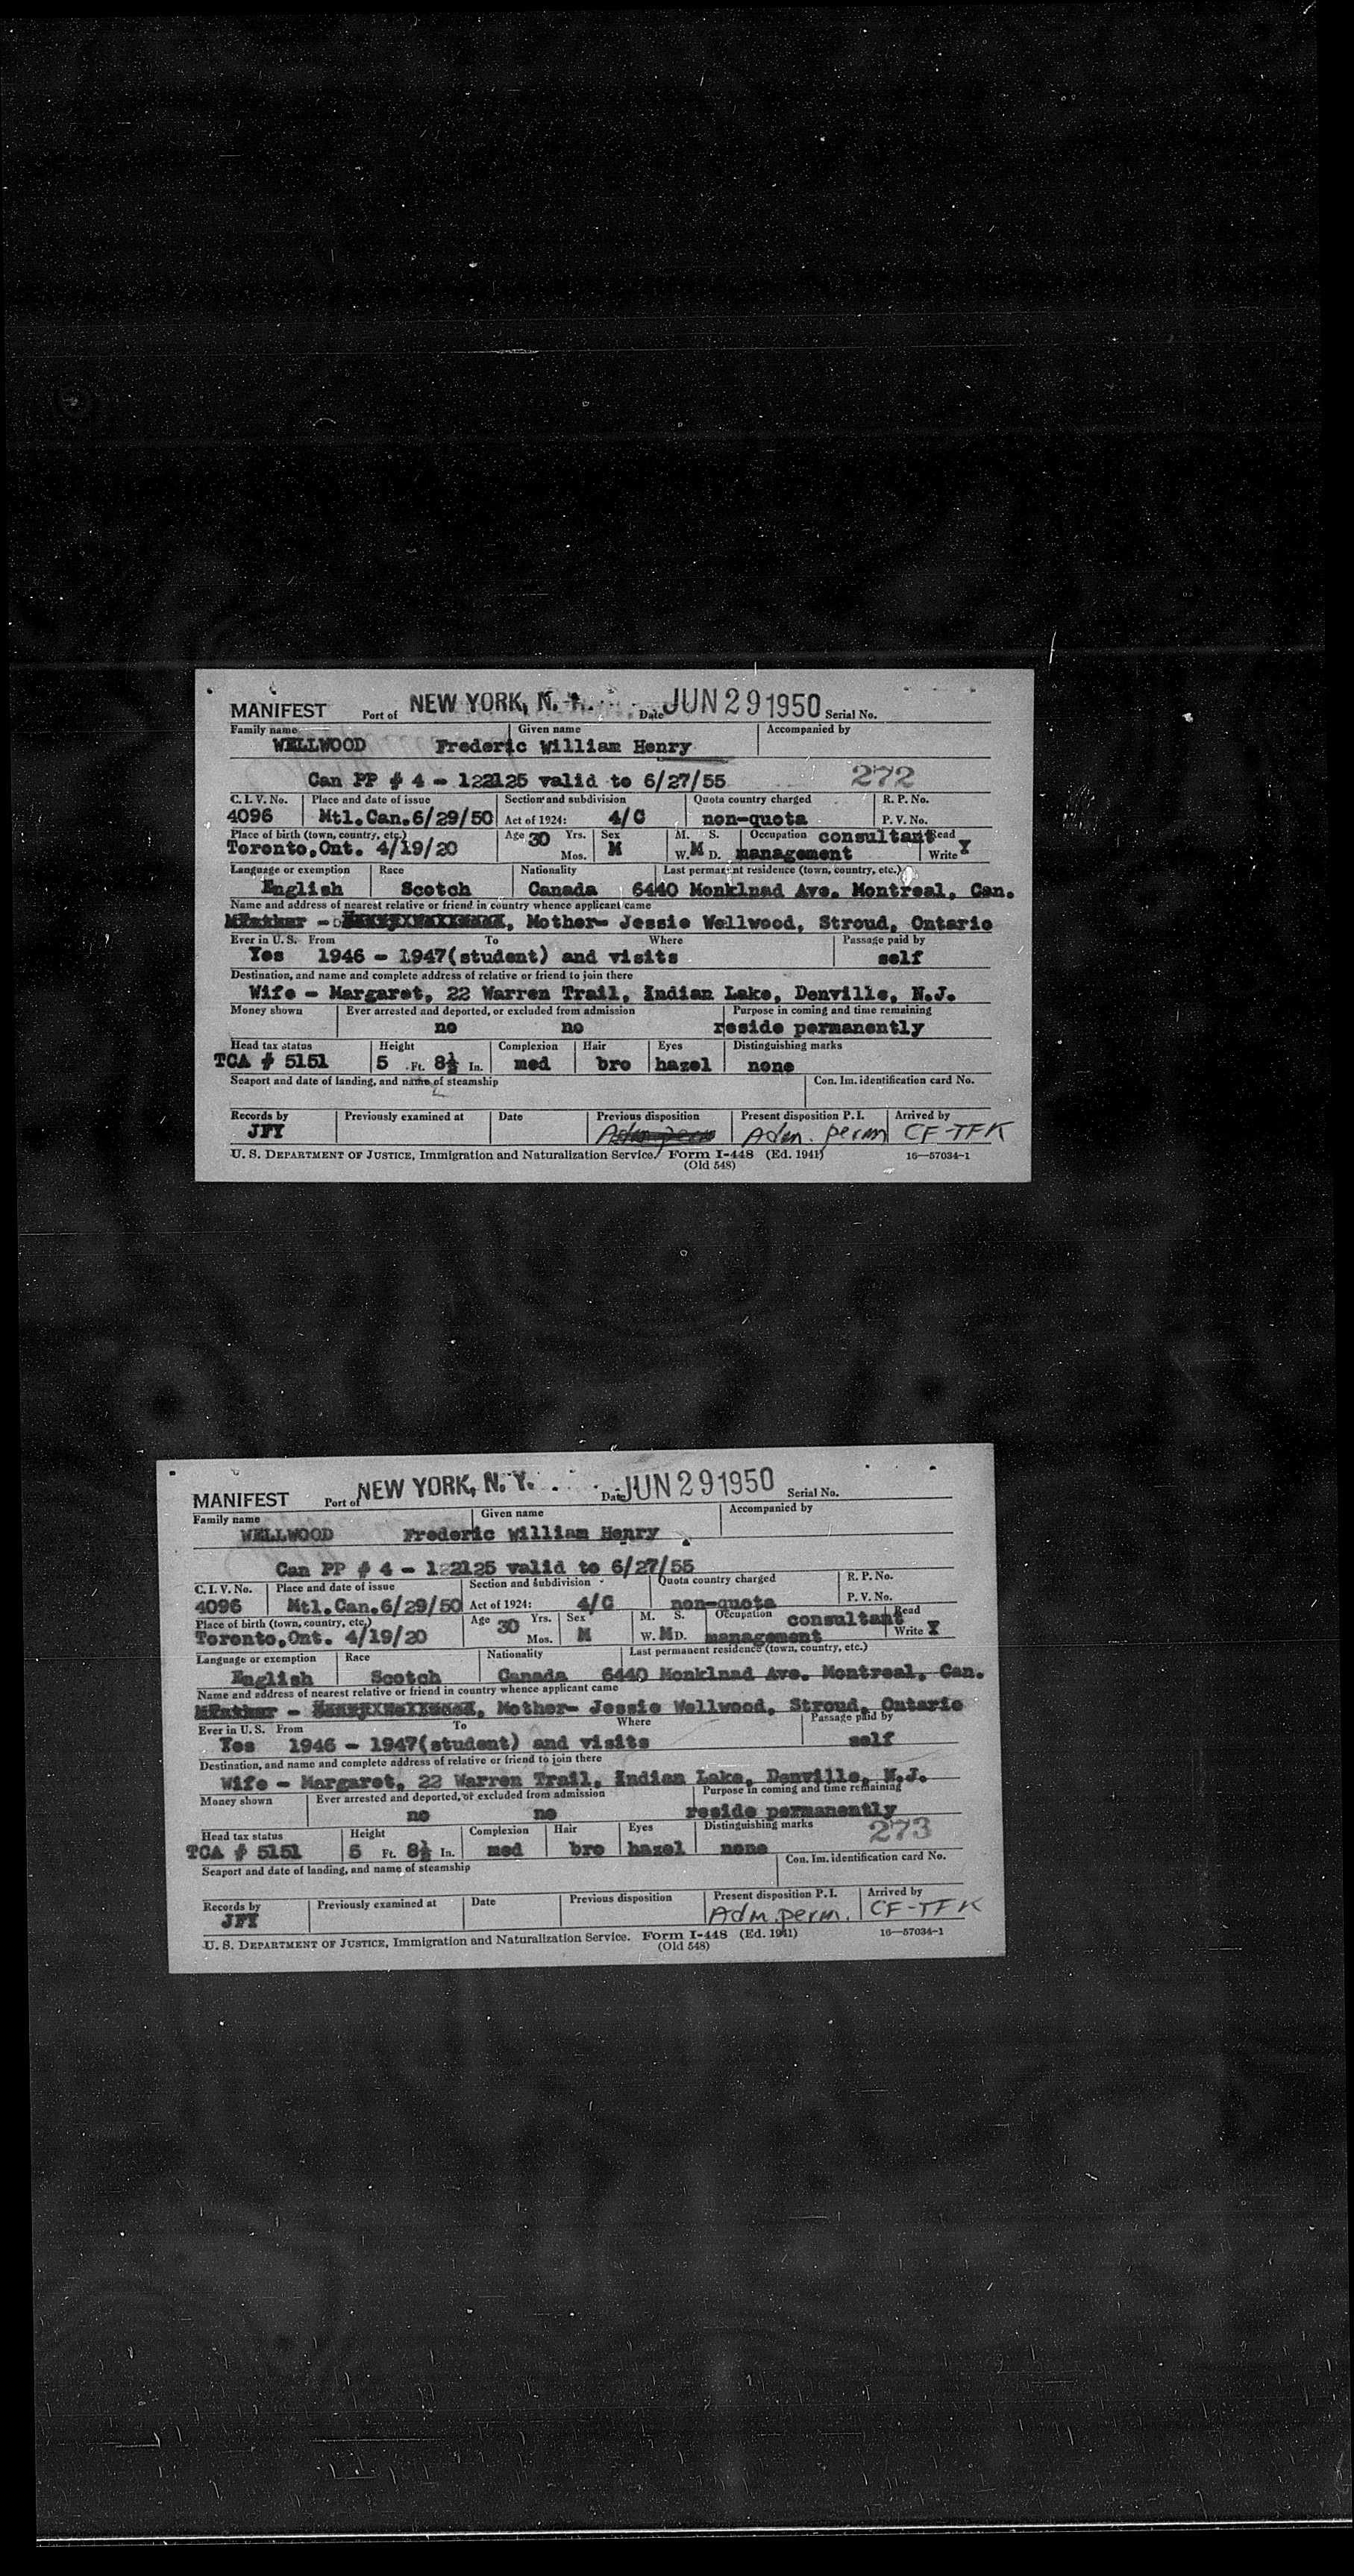 MANIFEST Port of NEW YORK, N. Y. Date JUN 29 1950 Serial No.
Family name Given name Accompanied by
WELLWOOD Frederic William Henry
Can PP # 4 - 122125 valid to 6/27/55 272
C. I. V. No. Place and date of issue Section and subdivision Quota country charged R. P. No.
4096 Mtl.Can.6/29/50 Act of 1924: 4/C non-quota P. V. No.
Place of birth (town, country, etc.) Age 30 Yrs. Sex M. S. Occupation consultant Read
Toronto,Ont. 4/19/20 Mos. M W. M D. management Write Y
Language or exemption Race Nationality Last permanent residence (town, country, etc.)
English Scotch Canada 6440 Monklnad Ave. Montreal, Can.
Name and address of nearest relative or friend in country whence applicant came
- , Mother- Jessie Wellwood, Stroud, Ontario
Ever in U. S. From To Where Passage paid by
Yes 1946 - 1947(student) and visits self
Destination, and name and complete address of relative or friend to join there
Wife - Margaret, 22 Warren Trail, Indian Lake, Denville, N.J.
Money shown Ever arrested and deported, or excluded from admission Purpose in coming and time remaining
no no reside permanently
Head tax status Height Complexion Hair Eyes Distinguishing marks
TCA # 5151 5 Ft. 8½ In. med bro hazel none
Seaport and date of landing, and name of steamship Con. Im. identification card No.
Records by Previously examined at Date Previous disposition Present disposition P. I. Arrived by
JFY Adm perm Adm. perm CF-TFK
U. S. DEPARTMENT OF JUSTICE, Immigration and Naturalization Service. Form I-448 (Ed. 1941) 16—57034-1
(Old 548)
MANIFEST Port of NEW YORK, N. Y. Date JUN 29 1950 Serial No.
Family name Given name Accompanied by
WELLWOOD Frederic William Henry
Can PP # 4 - 122125 valid to 6/27/55
C. I. V. No. Place and date of issue Section and subdivision Quota country charged R. P. No.
4096 Mtl.Can.6/29/50 Act of 1924: 4/C non-quota P. V. No.
Place of birth (town, country, etc.) Age 30 Yrs. Sex M. S. Occupation consultant Read
Toronto,Ont. 4/19/20 Mos. M W. M D. management Write Y
Language or exemption Race Nationality Last permanent residence (town, country, etc.)
English Scotch Canada 6440 Monklnad Ave. Montreal, Can.
Name and address of nearest relative or friend in country whence applicant came
- , Mother- Jessie Wellwood, Stroud, Ontario
Ever in U. S. From To Where Passage paid by
Yes 1946 - 1947(student) and visits self
Destination, and name and complete address of relative or friend to join there
Wife - Margaret, 22 Warren Trail, Indian Lake, Denville, N.J.
Money shown Ever arrested and deported, or excluded from admission Purpose in coming and time remaining
no no reside permanently
Head tax status Height Complexion Hair Eyes Distinguishing marks 273
TCA # 5151 5 Ft. 8½ In. med bro hazel none
Seaport and date of landing, and name of steamship Con. Im. identification card No.
Records by Previously examined at Date Previous disposition Present disposition P. I. Arrived by
JFY Adm. perm. CF-TFK
U. S. DEPARTMENT OF JUSTICE, Immigration and Naturalization Service. Form I-448 (Ed. 1941) 16—57034-1
(Old 548)